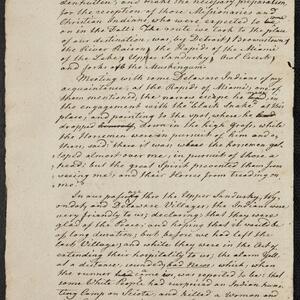 identures, and make the necessary preparation
for the reception of those Missionaries and
Christian Indians, who were expected to
on in the Fall. The route we took to the place
of our destination was, by Detroit, Brownstown,
the River Raisin, the Rapids of the Miami
of the Lake, Upper Sandusky, Owl Creek,
and forks of the Muskingum.
Meeting with some Delaware Indians of my
acquaintance; at the Rapids of Miami, one of
them mentioned, that he was in
the engagement with the "Black Snake" at this
place; and pointing to the spot, where he
dropped down in the high grass, while
the Horsemen were in pursuit of him and o-
thers, said: there it was where the horsemen gal-
loped almost over me, in pursuit of those a
head: but the great Spirit prevented them from
seeing me; and their Horses from treading on
me."
In our passing thro the Upper Sandusky, Wy-
ondots and Delaware Villages, the Indians were
very friendly to us; declaring; that they were
glad of the Peace, and hoping that it would be
of long duration; but before we had left the
last Village; and while they were in the Act of
extending their hospitality to us; the alarm Yell,
at a distance, sounded bad News: which, when
the runner had come in, was reported to be; that
some White People had surprised an Indian hun-
ting Camp on Sciota, and killed a Woman and